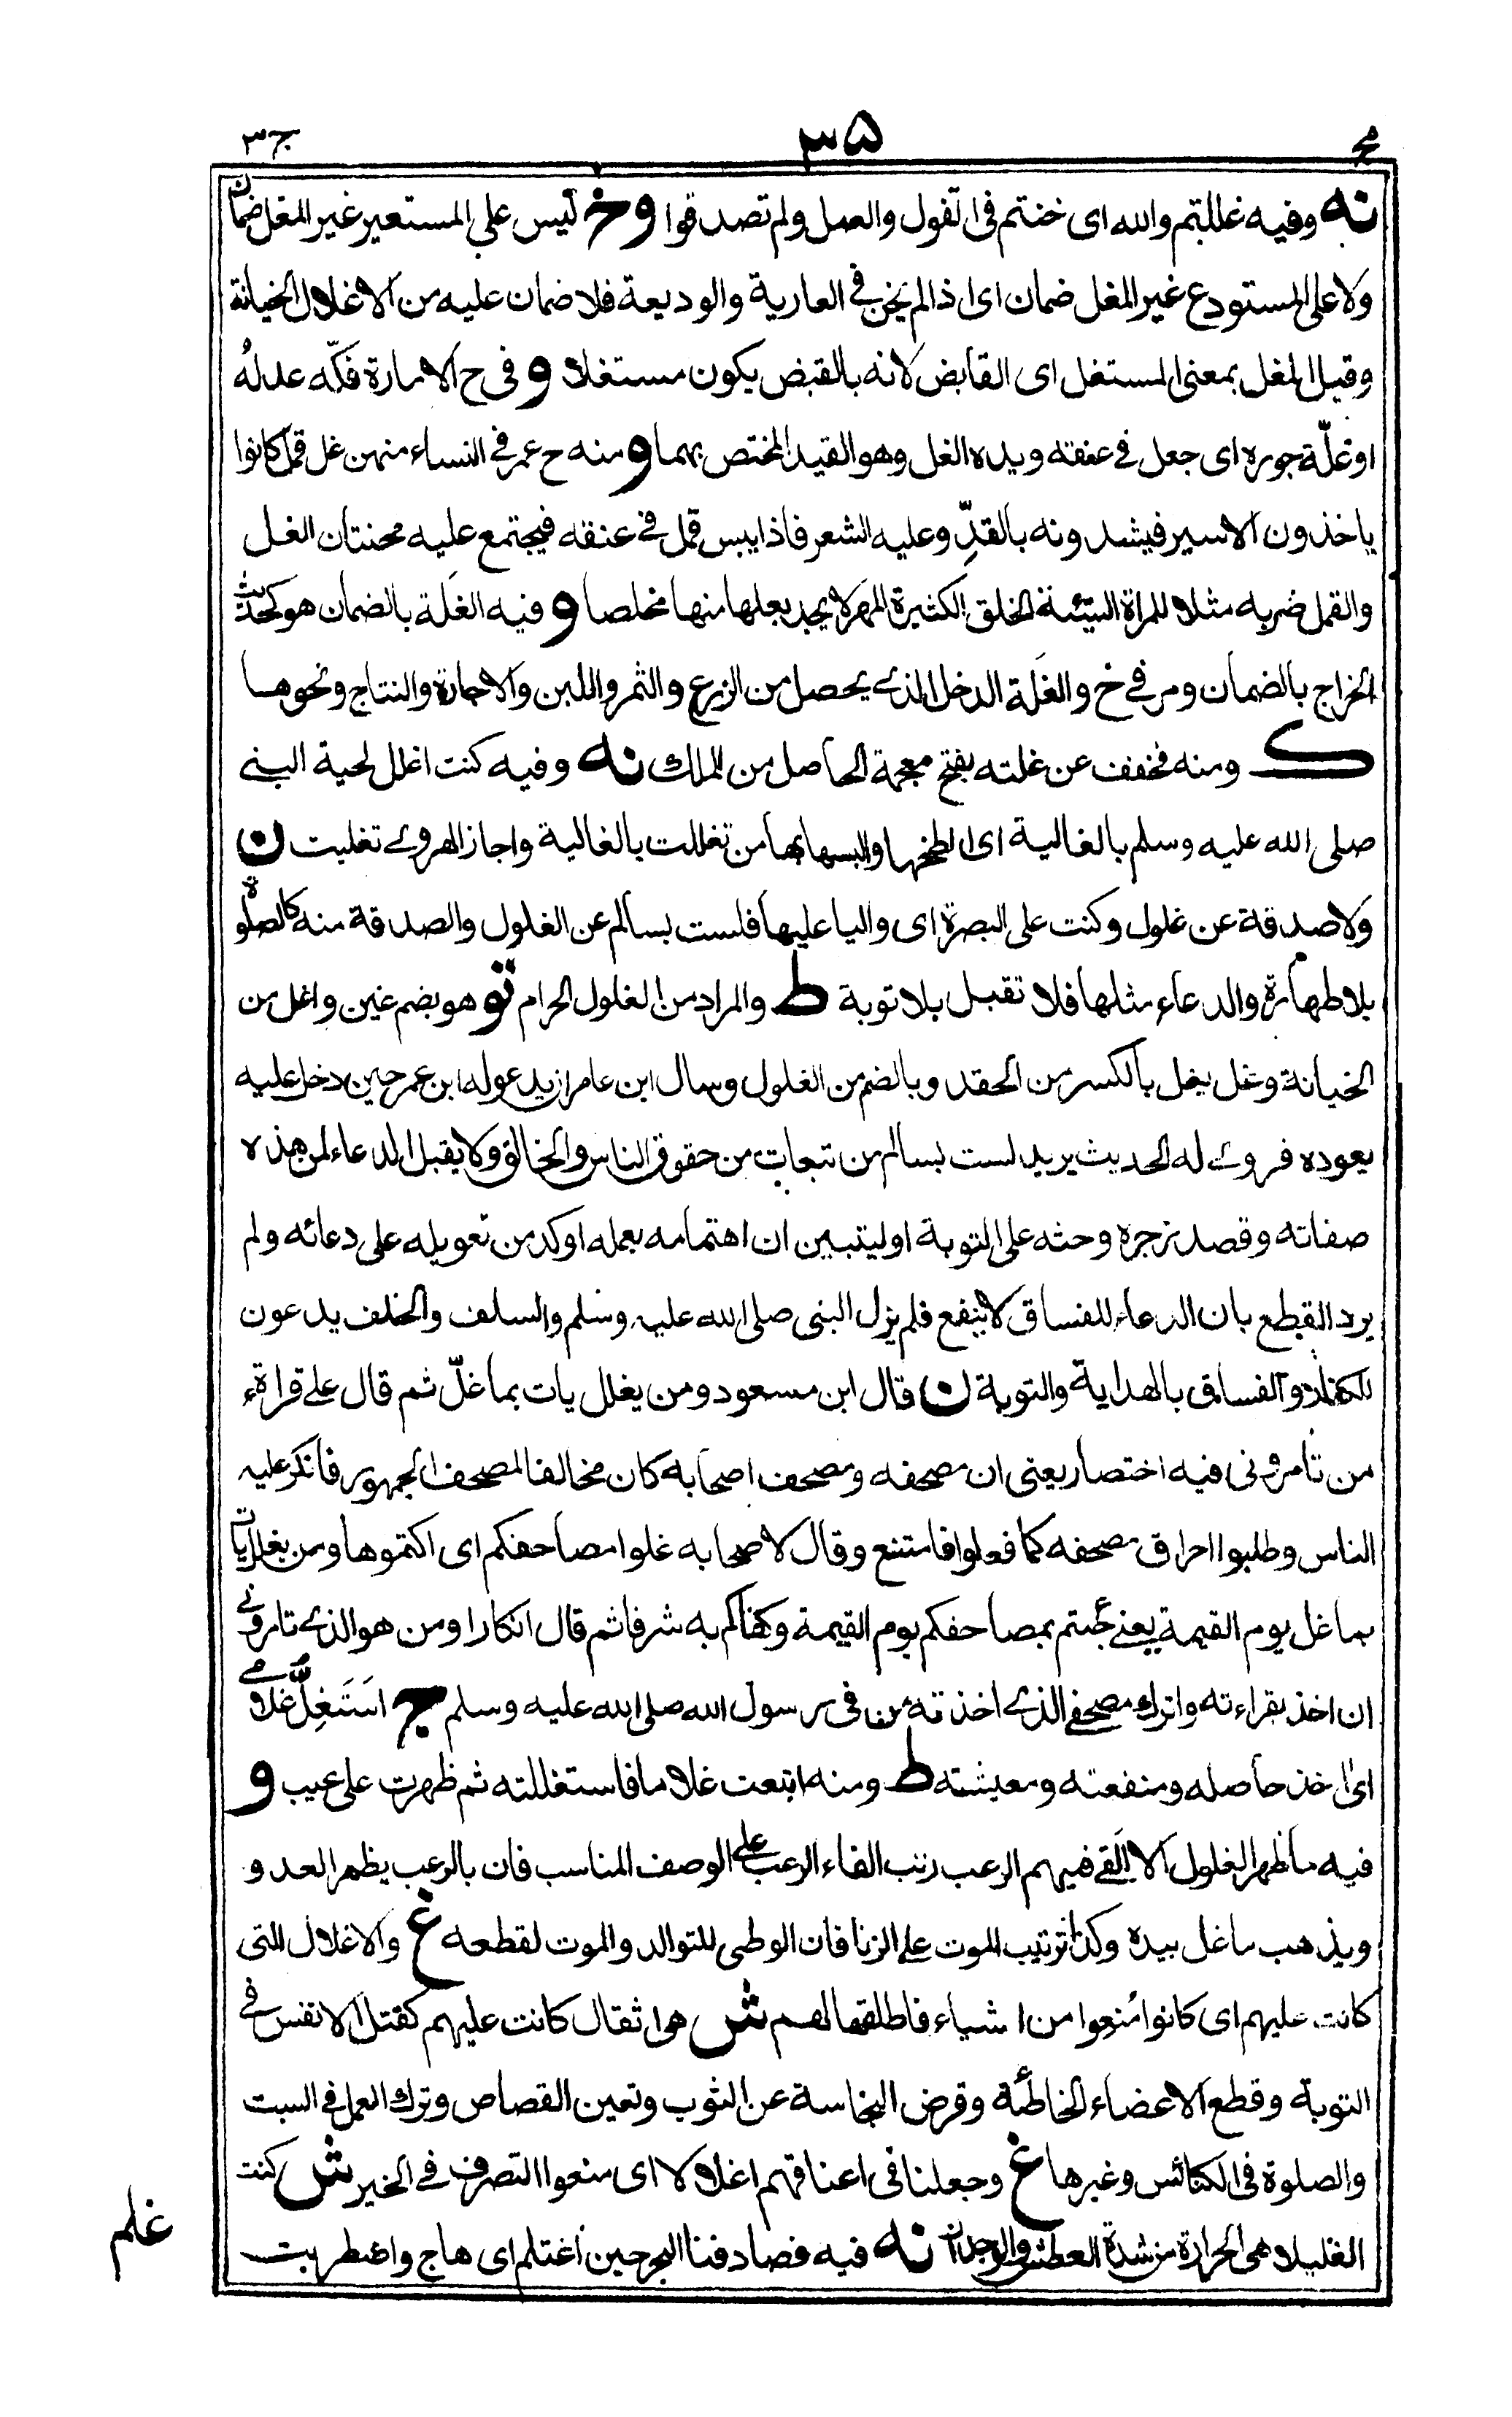 مج ۳۵ ج۳
نه وفيه غللتم والله اى خنتم فى القول والعمل ولم تصدقوا و خ ليس على المستعير غير المغل ضمان
ولا على المستودع غير المغل ضمان اى اذا لم يخن فى العارية والوديعة فلا ضمان عليه من الاغلال الخيانة
وقيل المغل بمعنى المستغل اى القابض لانه بالقبض يكون مستغلا و فى ح الامارة فكّه عدلهُ
او غلّه جوره اى جعل فى عنقه ويده الغل وهو القيد المختص بهما و منه ح عمر فى النساء منهن غل قمل كانوا
ياخذون الاسير فيشدونه بالقدِّ وعليه الشعر فاذا يبس قمل فى عنقه فيجتمع عليه محنتان الغل
والقمل ضربه مثلا للمراة السيّئة الخلق الكثيرة المهر لا يجد بعلها منها مخلصا و فيه الغَلة بالضمان هو كحديث
الخراج بالضمان ومر فى خ والغَلة الدخل الذى يحصل من الزرع والثمر واللبن والاجارة والنتاج ونحوها
ك ومنه فخفف عن غلته بفتح معجمة الحاصل من الملك نه وفيه كنت اغلل لحية النبى
صلى الله عليه وسلم بالغالية اى الطخها والبسها بها من تغللت بالغالية واجاز الهروى تغليت ن
ولا صدقة عن غلول وكنت على البصرة اى واليا عليها فلست بسالم عن الغلول والصدقة منه كالصلوة
بلا طهارة والدعاء مثلها فلا تقبل بلا توبة ط والمراد من الغلول الحرام تو هو بضم غين واغل من
الخيانة وغل يغل بالكسر من الحقد وبالضم من الغلول وسال ابن عامر ان يدعوله ابن عمر حين دخل عليه
يعوده فروى له الحديث يريد لست بسالم من تبعات من حقوق الناس والخالق ولا يقبل الدعاء لمن هذه
صفاته وقصد زجره وحثه على التوبة او ليتبين ان اهتمامه بعمله اوكد من تعويله على دعائه ولم
يرد القطع بان الدعاء للفساق لا ينفع فلم يزل النبى صلى الله عليه وسلم والسلف والخلف يدعون
للكفار والفساق بالهداية والتوبة ن قال ابن مسعود ومن يغلل يات بما غلّ ثم قال على قراءة
من تامرونى فيه اختصار يعنى ان مصحفه ومصحف اصحابه كان مخالفا لمصحف الجمهور فانكر عليه
الناس وطلبوا احراق مصحفه كما فعلوا فامتنع وقال لاصحابه غلوا مصاحفكم اى اكتموها ومن يغلل يات
بما غل يوم القيمة يعنى جئتم بمصاحفكم يوم القيمة وكفاكم به شرفا ثم قال انكارا ومن هو الذى تامرونى
ان اخذ بقراءته واترك مصحفى الذى اخذته من فى رسول الله صلى الله عليه وسلم ج اسَتَغِلَّ غلامى
اى اخذ حاصله ومنفعته ومعيشته ط ومنه ابتعت غلاما فاستغللته ثم ظهرت على عيب و
فيه ما ظهر الغلول الا القى فيهم الرعب رتب القاء الرعب على الوصف المناسب فان بالرعب يظهر العدو
ويذهب ما غل بيده وكذا ترتيب الموت على الزنا فان الوطى للتوالد والموت لقطعه غ والاغلال التى
كانت عليهم اى كانوا مُنعوا من اشياء فاطلقها لهم ش هى اثقال كانت عليهم كقتل الانفس فى
التوبة وقطع الاعضاء الخاطئة وقرض النجاسة عن الثوب وتعين القصاص وترك العمل فى السبت
والصلوة فى الكنائس وغيرها غ وجعلنا فى اعناقهم اغلالا اى منعوا التصرف فى الخير ش كنت
الغليلا هى الحرارة من شدة العطش والوجدان نه فيه فصادفنا البحر حين اغتلم اى هاج واضطربت
غلم